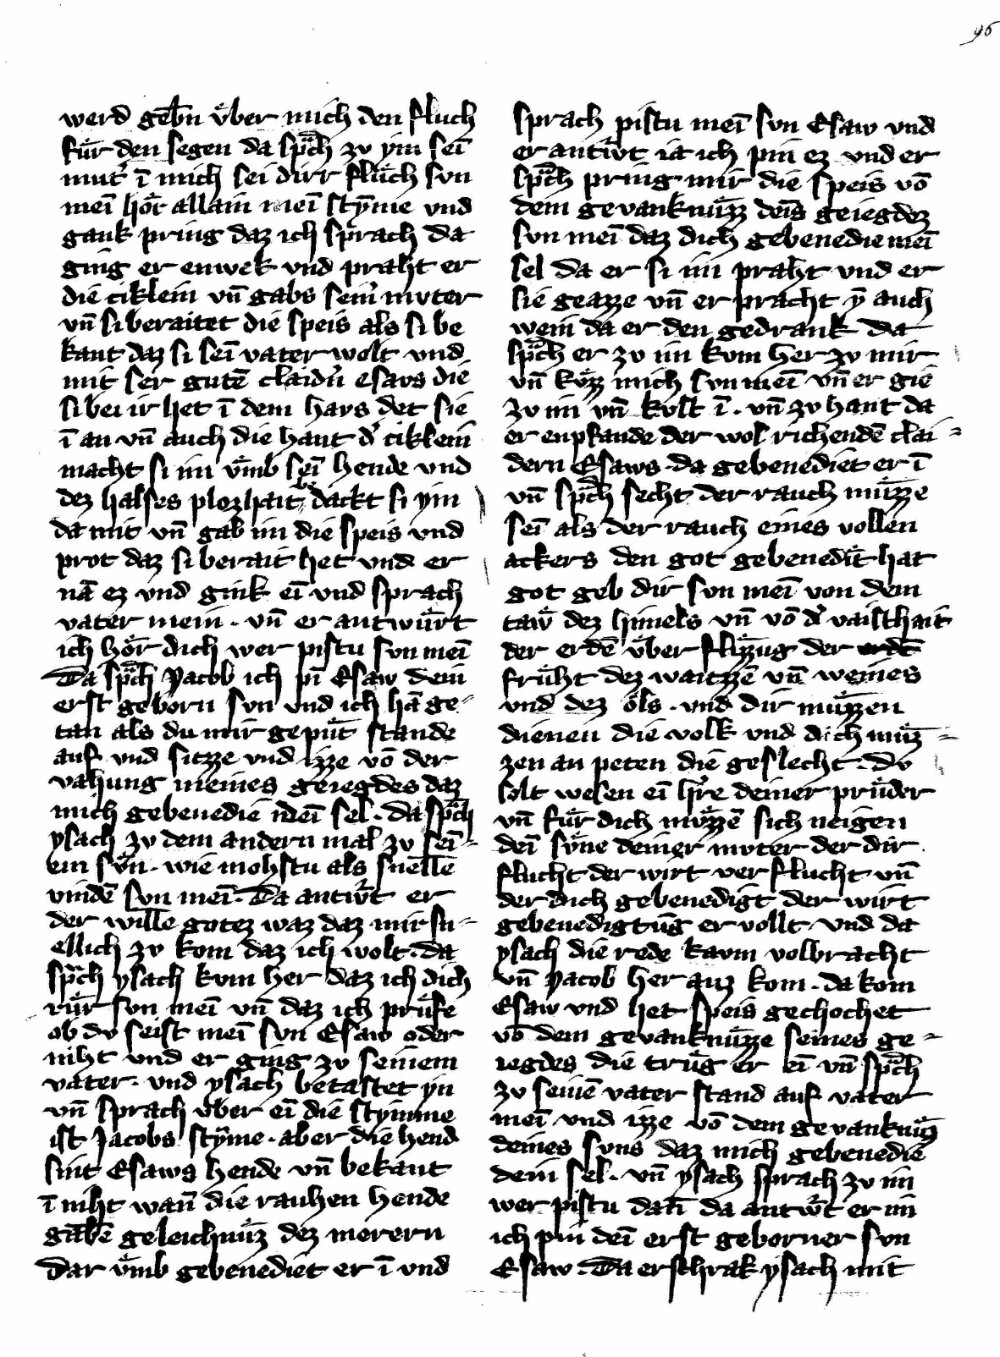 96
werd gebn vͤber mich den fluch
fuͤr den segen da sp̄ch zv ym sei̅
mut̓ i̅ mich sei dirr fluͤch svn
mei̅ hoͤr allain mei̅ sty̅me vnd
gank pring daz ich sprach da
ging er enwek vnd praht er
die ciklein vn̅ gabs sein̓ mvter
vn̅ si beraitet die speis als si be
kant daz si sei̅ vater wolt vnd
mit ser gute̅ claidn̓ esavs die
si bei ir het i̅ dem havs det sie
i̅ an vn̅ auch die haut d̓ ciklein
macht si im vͤmb sei̅ hende vnd
dez halses plozhait dackt si ym
da mit vn̅ gab im die speis vnd
prot daz si berait het vnd er
na̅ ez vnd gink ei̅ vnd sprach
vater mein · vn̅ er antwuͤrt
ich hoͤr dich wer pistu svn mei̅
Da sp̄ch Yacob ich pi̅ Esaw dein
erst geborn svn vnd ich ha̅ ge-
tan als du mir gepuͤt stande
auf vnd sitzze vnd izze vo̅ der
vahung meines geiegdes daz
mich gebenedie mei̅ sel · da sp̄ch
ysach zv dem andern mal zv sei̅-
em svͤn · wie mohstu als snelle̅
vinde̅ svn mei̅ · Da antw̓t er
der wille gotez waz daz mir sn-
ellich zv kom daz ich wolt · da
sp̄ch ysach kvm her daz ich dich
ruͤr svn mei̅ vn̅ daz ich pruͤfe
ob dv seist mei̅ svn Esaw oder
niht vnd er ging zv seinem
vater · vnd ysach betastet yn
vn̅ sprach vͤber ei̅ die stymme
ist Jacobs sty̅me · aber die hend
sint Esaws hende vn̅ bekant
i̅ niht wan̅ die rauhen hende
gabe̅ geleichnuͤz dez merern
Dar vͤmb gebenediet er i̅ vnd
sprach pistu mei̅ svn Esaw vnd
er antw̓t ia ich pin ez vnd er
sp̄ch pring mir die speis vo̅
dem gevanknuͤzz dei̅s geiegdez
svn mei̅ daz dich gebenedie mei̅
sel da er si im praht vnd er
sie geazze vn̅ er pracht y̅ auch
wein da er den gedrank da
sp̄ch er zv im kvm her zv mir
vn̅ kuͤzz mich svn mei̅ vn̅ er gie
zv im vn̅ kvst i̅ · vn̅ zv hant da
er enpfande der wol richende̅ clai-
dern Esaws · da gebenediet er i̅
vn̅ sp̄ch secht der rauch muͤzze
sei̅ als der rauch eines vollen
ackers den got gebenedit̅ hat
got geb dir svn mei̅ von dem
taw̓ dez himels vn̅ vo̅ d̓ vaisthait
der erde̅ vͤber fluͤzzug der erde̅
fruͤht dez waitzze̅ vn̅ weines
vnd dez oͤls · vnd dir muͤzzen
dienen die volk vnd dich muͤz-
zen an peten die geslecht · dv
solt wesen ei̅ h̓re deiner pruͤder
vn̅ fuͤr dich muͤzze̅ sich neigen
dei̅ svͤne deiner mvter der dir
flucht der wirt verflucht vn̅
der dich gebenedigt der wirt
gebenedigtu̅g ervollt · vnd da
ysach die rede kavm volbracht
vn̅ Yacob her auz kom · da kom
Esaw vnd het speis gechochet
vo̅ dem gevanknuͤzze seines ge-
iegdes die truͤg er ei̅ vn̅ sp̄ch
zv seine̅ vater stand auf vater
mei̅ vnd izze vo̅ dem gevanknuͤz
deines svns daz mich gebenedie
dein sel · vn̅ ysach sprach zv im
wer pistu dan̅ da antw̓t er im
ich pin dei̅ erst geborner svn
Esaw · Da erschrak ysach mit